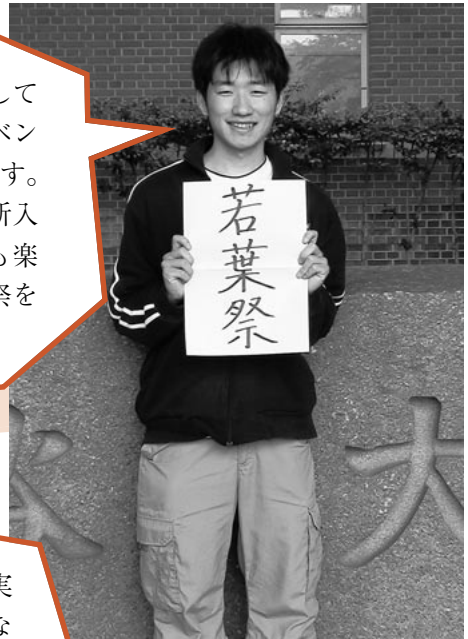 して
ベン
す。
新入
も楽
祭を
若葉祭
大
実
な